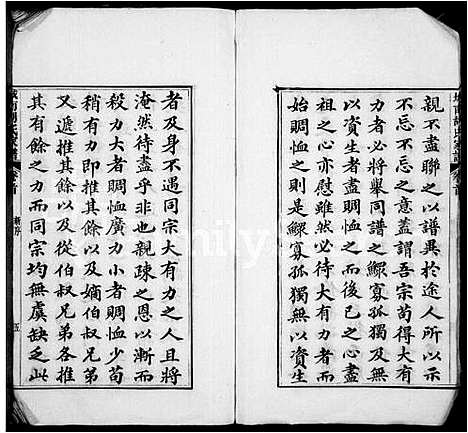 城南胡氏家譜 卷首
親不盡聯之以譜異於途人所以示
不忘不忘之意蓋謂吾宗苟得大有
力者必將舉同譜之鰥寡孤獨及無
以資生者盡賙恤之而後已之心盡
祖之心亦慰雖然必待大有力者而
始賙恤之則是鰥寡孤獨無以資生
者及身不遇同宗大有力之人且將
淹然待盡乎非也親疎之恩以漸而
殺力大者賙恤廣力小者賙恤少苟
稍有力即推其餘以及嫡伯叔兄弟
又遞推其餘以及從伯叔兄弟各推
其有餘之力而同宗均無虞缺乏此
城南胡氏家譜 卷首 新序 五